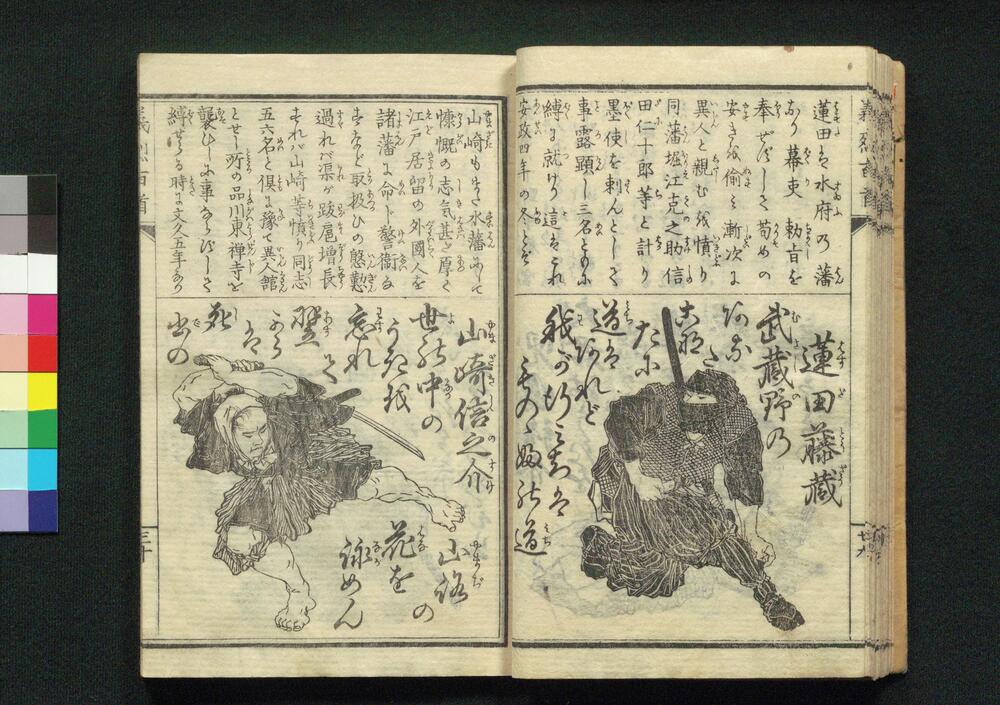 蓮田は水府の藩
なり幕吏 勅旨を
奉ぜずして苟めの
安きを偸み漸次に
異人と親むを憤り
同藩堀江克之助信
田仁十郎等と計り
墨使を刺んとして
事露顕し三名ともに
縛に就けり這はこれ
安政四年の冬とぞ
蓮田藤藏
武藏野の
あなた
こなたに
道は
あれど
我が行
道
義烈百首
廿九
山崎もまた水藩にして
慷慨の志気甚厚く
江戸居留の外國人を
諸藩に命じ警衛なさ
しむなど取扱ひの慇懃
過れバ渠が跋尾増長
すれバ山崎等憤り同志
五六名と倶に豫て異人館
とせし所の品川東禅寺を
襲ひしに事ならずして
縛せらる時は文久五年なり
山崎信之介
世の中の
うきを
忘れて
翌
よりは
死
出の
山路の
花を
詠めん
義烈百首
三十